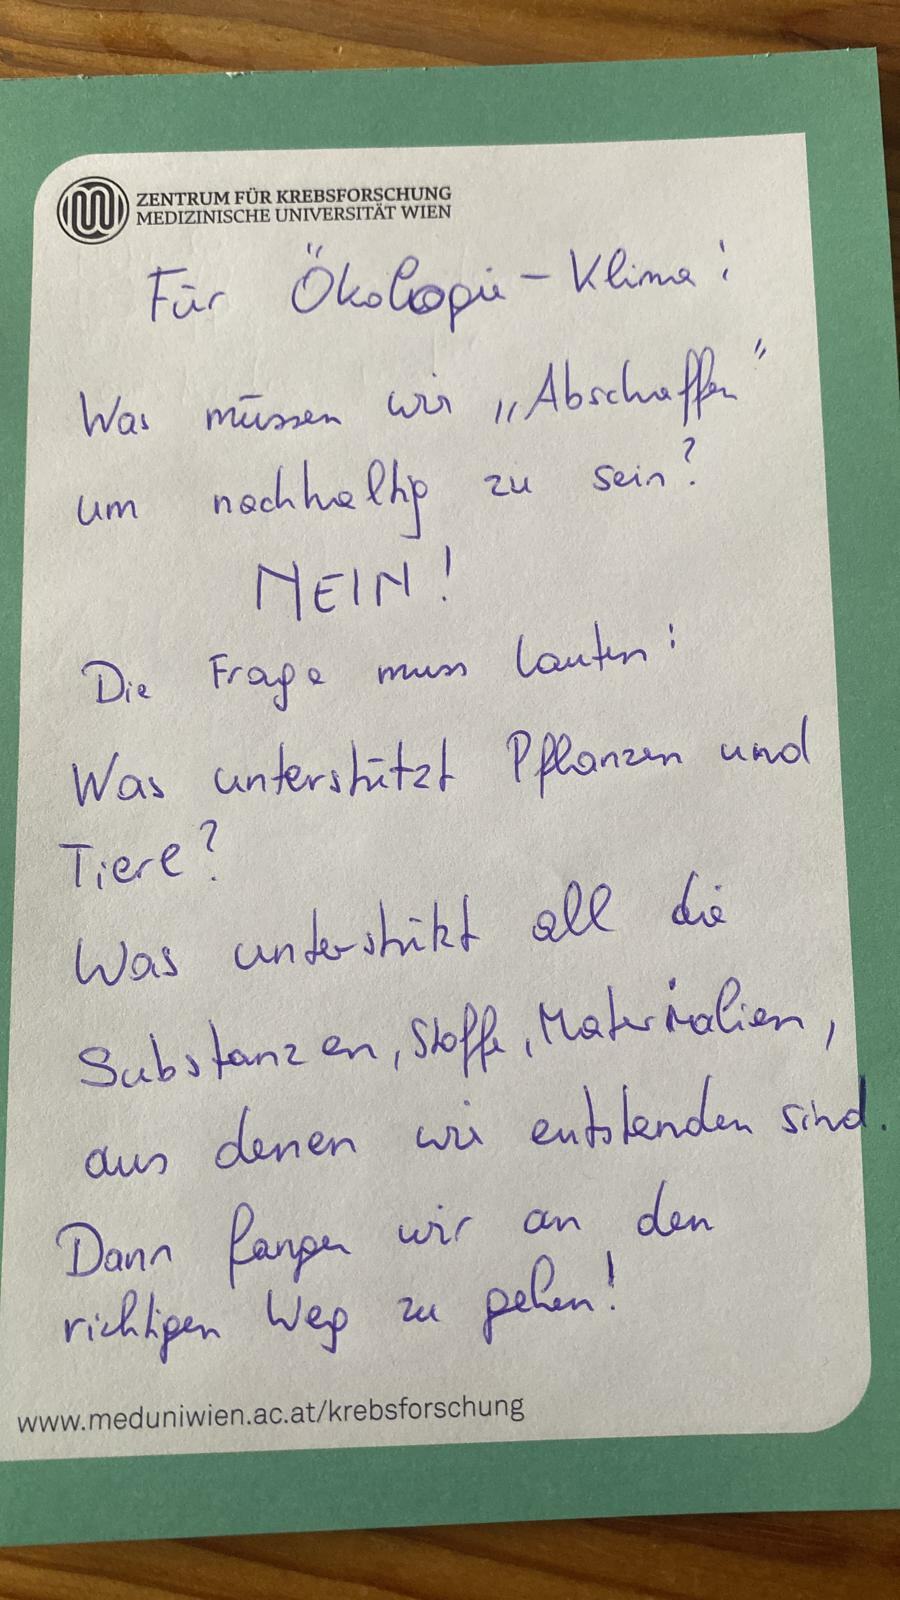 ZENTRUM FÜR KREBSFORSCHUNG
MEDIZINISCHE UNIVERSITÄT WIEN
Für Ökologie - Klima:
Was müssen wir „Abschaffen"
um nachhaltig zu sein?
NEIN!
Die Frage muss lauten:
Was unterstützt Pflanzen und
Tiere?
Was unterstützt all die
Substanzen, Stoffe, Materialien,
aus denen wir entstanden sind.
Dann fangen wir an den
richtigen Weg zu gehen!
www.meduniwien.ac.at/krebsforschung